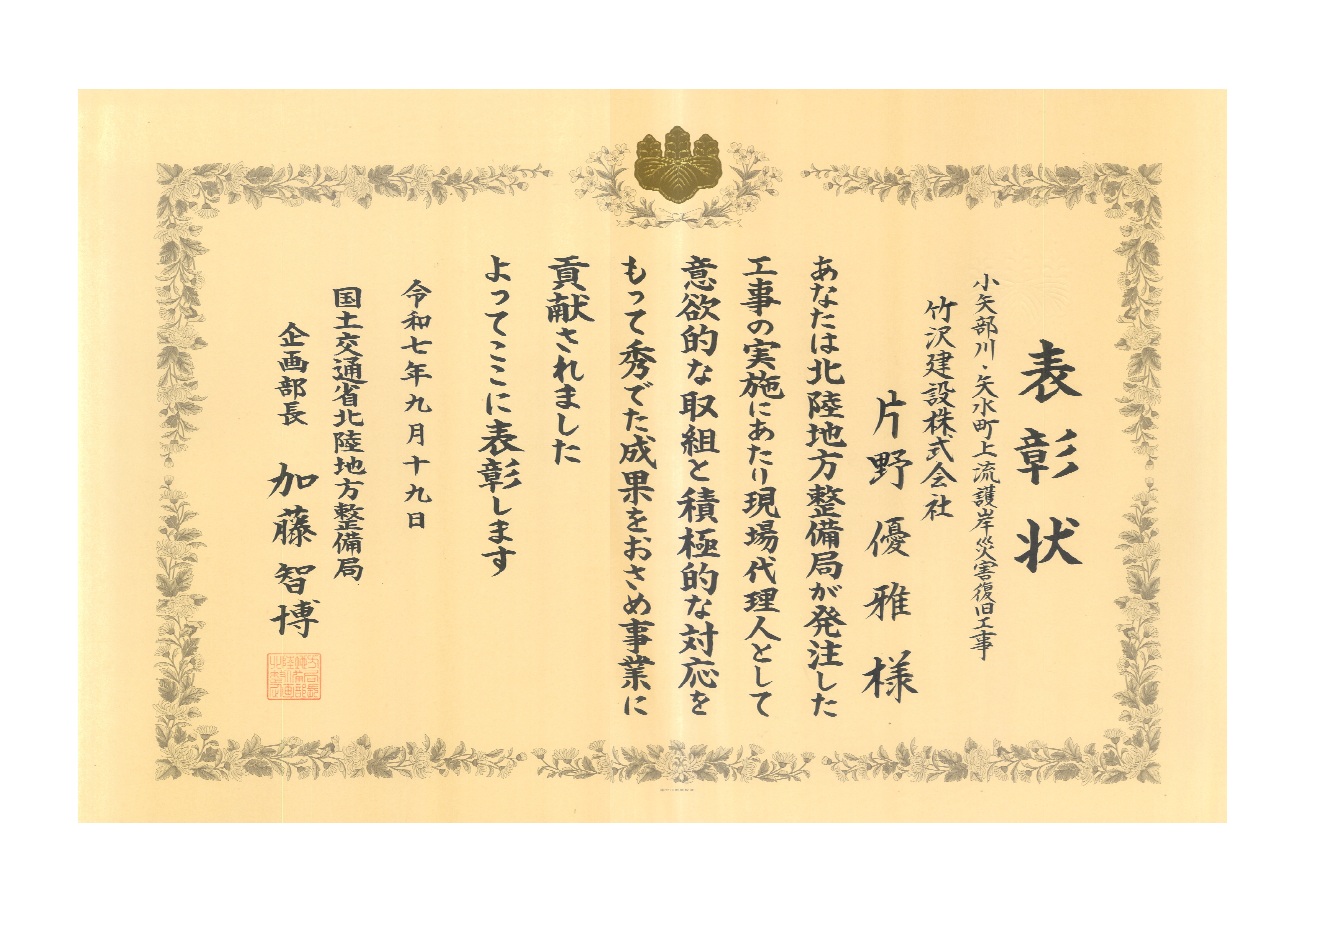 表彰状
小矢部川・矢水町上流護岸災害復旧工事
竹沢建設株式会社
片野優雅様
あなたは北陸地方整備局が発注した
工事の実施にあたり現場代理人として
意欲的な取組と積極的な対応を
もって秀でた成果をおさめ事業に
貢献されました
よってここに表彰します
令和七年九月十九日
国土交通省北陸地方整備局
企画部長　加藤智博